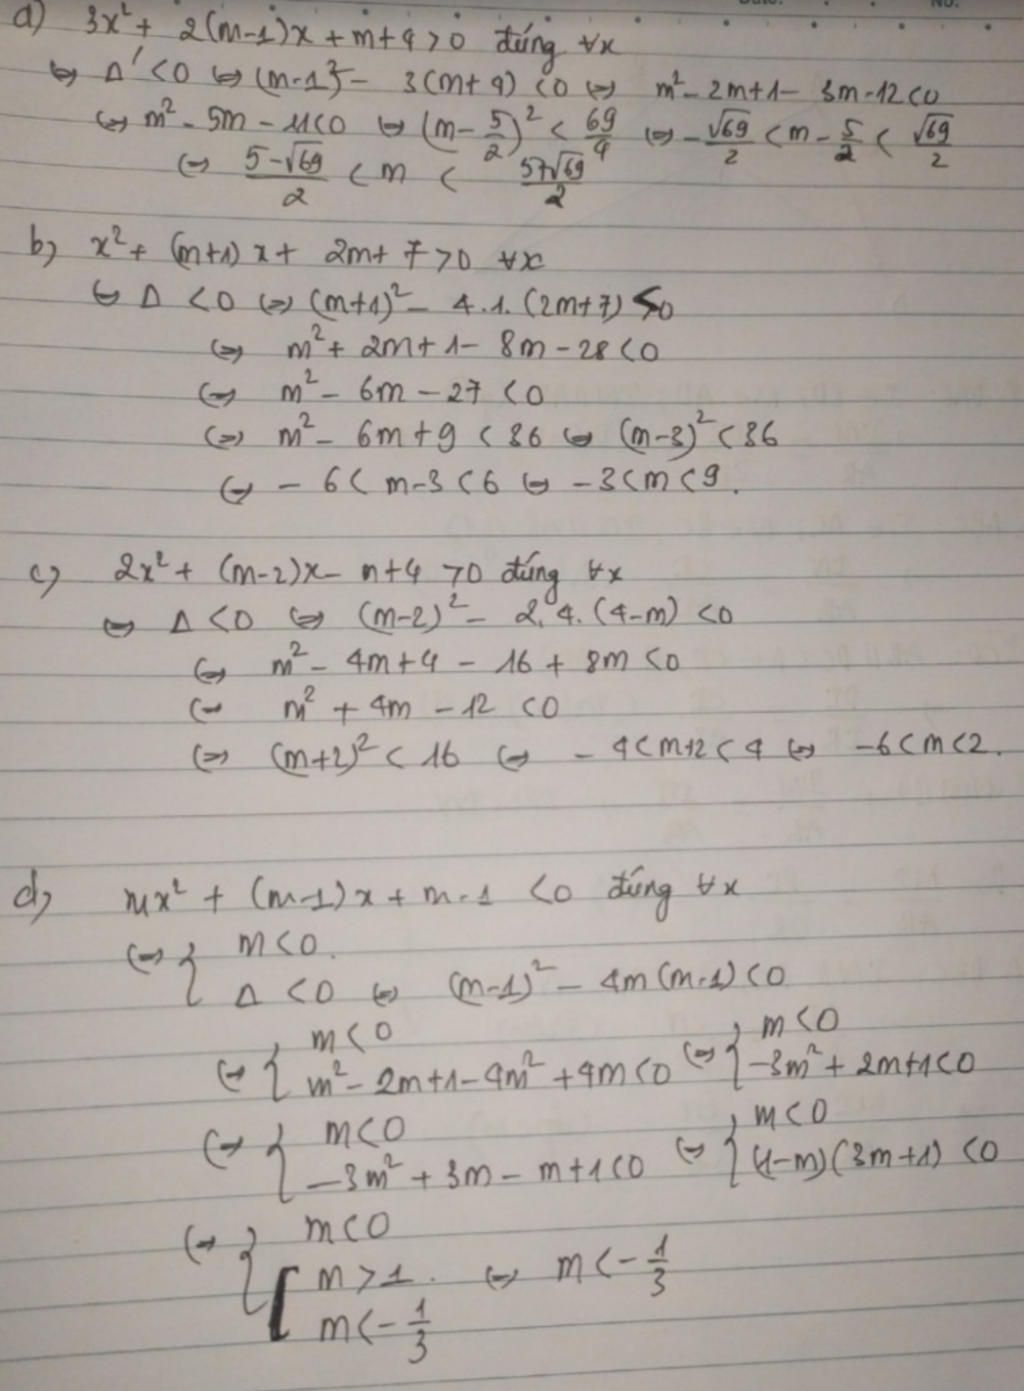 a) 3x² + 2(m-1)x + m+4 > 0 đúng ∀x
⇔ Δ' < 0 ⇔ (m-1)² - 3(m+4) < 0 ⇔ m² - 2m+1 - 3m-12 < 0
⇔ m² - 5m - 11 < 0 ⇔ (m - 5/2)² < 69/4 ⇔ -√69/2 < m - 5/2 < √69/2
⇔ (5-√69)/2 < m < (5+√69)/2
b) x² + (m+1)x + 2m+7 > 0 ∀x
⇔ Δ < 0 ⇔ (m+1)² - 4.1.(2m+7) < 0
⇔ m² + 2m+1 - 8m - 28 < 0
⇔ m² - 6m - 27 < 0
⇔ m² - 6m + 9 < 36 ⇔ (m-3)² < 36
⇔ -6 < m-3 < 6 ⇔ -3 < m < 9.
c) 2x² + (m-2)x - m+4 > 0 đúng ∀x
⇔ Δ < 0 ⇔ (m-2)² - 2.4.(4-m) < 0
⇔ m² - 4m+4 - 16 + 8m < 0
⇔ m² + 4m - 12 < 0
⇔ (m+2)² < 16 ⇔ -4 < m+2 < 4 ⇔ -6 < m < 2.
d) mx² + (m-1)x + m-1 < 0 đúng ∀x
⇔ { m < 0.
Δ < 0 ⇔ (m-1)² - 4m(m-1) < 0
⇔ { m < 0 ⇔ { m < 0
m² - 2m+1 - 4m² + 4m < 0 -3m² + 2m+1 < 0
⇔ { m < 0 ⇔ { m < 0
-3m² + 3m - m+1 < 0 (1-m)(3m+1) < 0
⇔ { m < 0
[ m > 1. ⇔ m < -1/3
m < -1/3